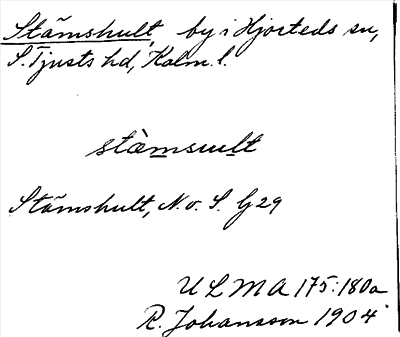 Stämshult, by i Hjorteds sn,
S. Tjusts hd, Kalm. l.
stæ̀msuult
Stämshult, N. o. S. Gj 29
ULMA 175:180a
R. Johansson 1904